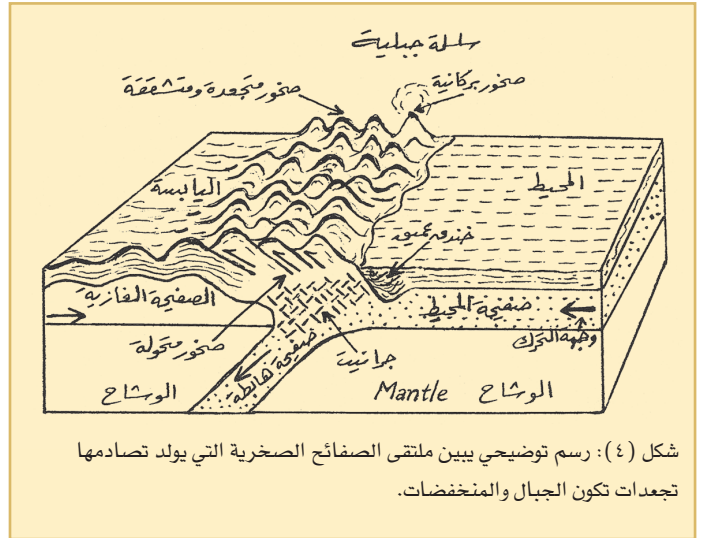 سلسلة جبلية
صخور بركانية
صخور متجعدة ومتشققة
اليابسة
المحيط
خندق عميق
الصفيحة القارية
صفيحة المحيط
وجهة التحرك
صخور متحولة
جرانيت
صفيحة هابطة
الوشاح
Mantle الوشاح
شكل (٤): رسم توضيحي يبين ملتقى الصفائح الصخرية التي يولد تصادمها
تجعدات تكون الجبال والمنخفضات.